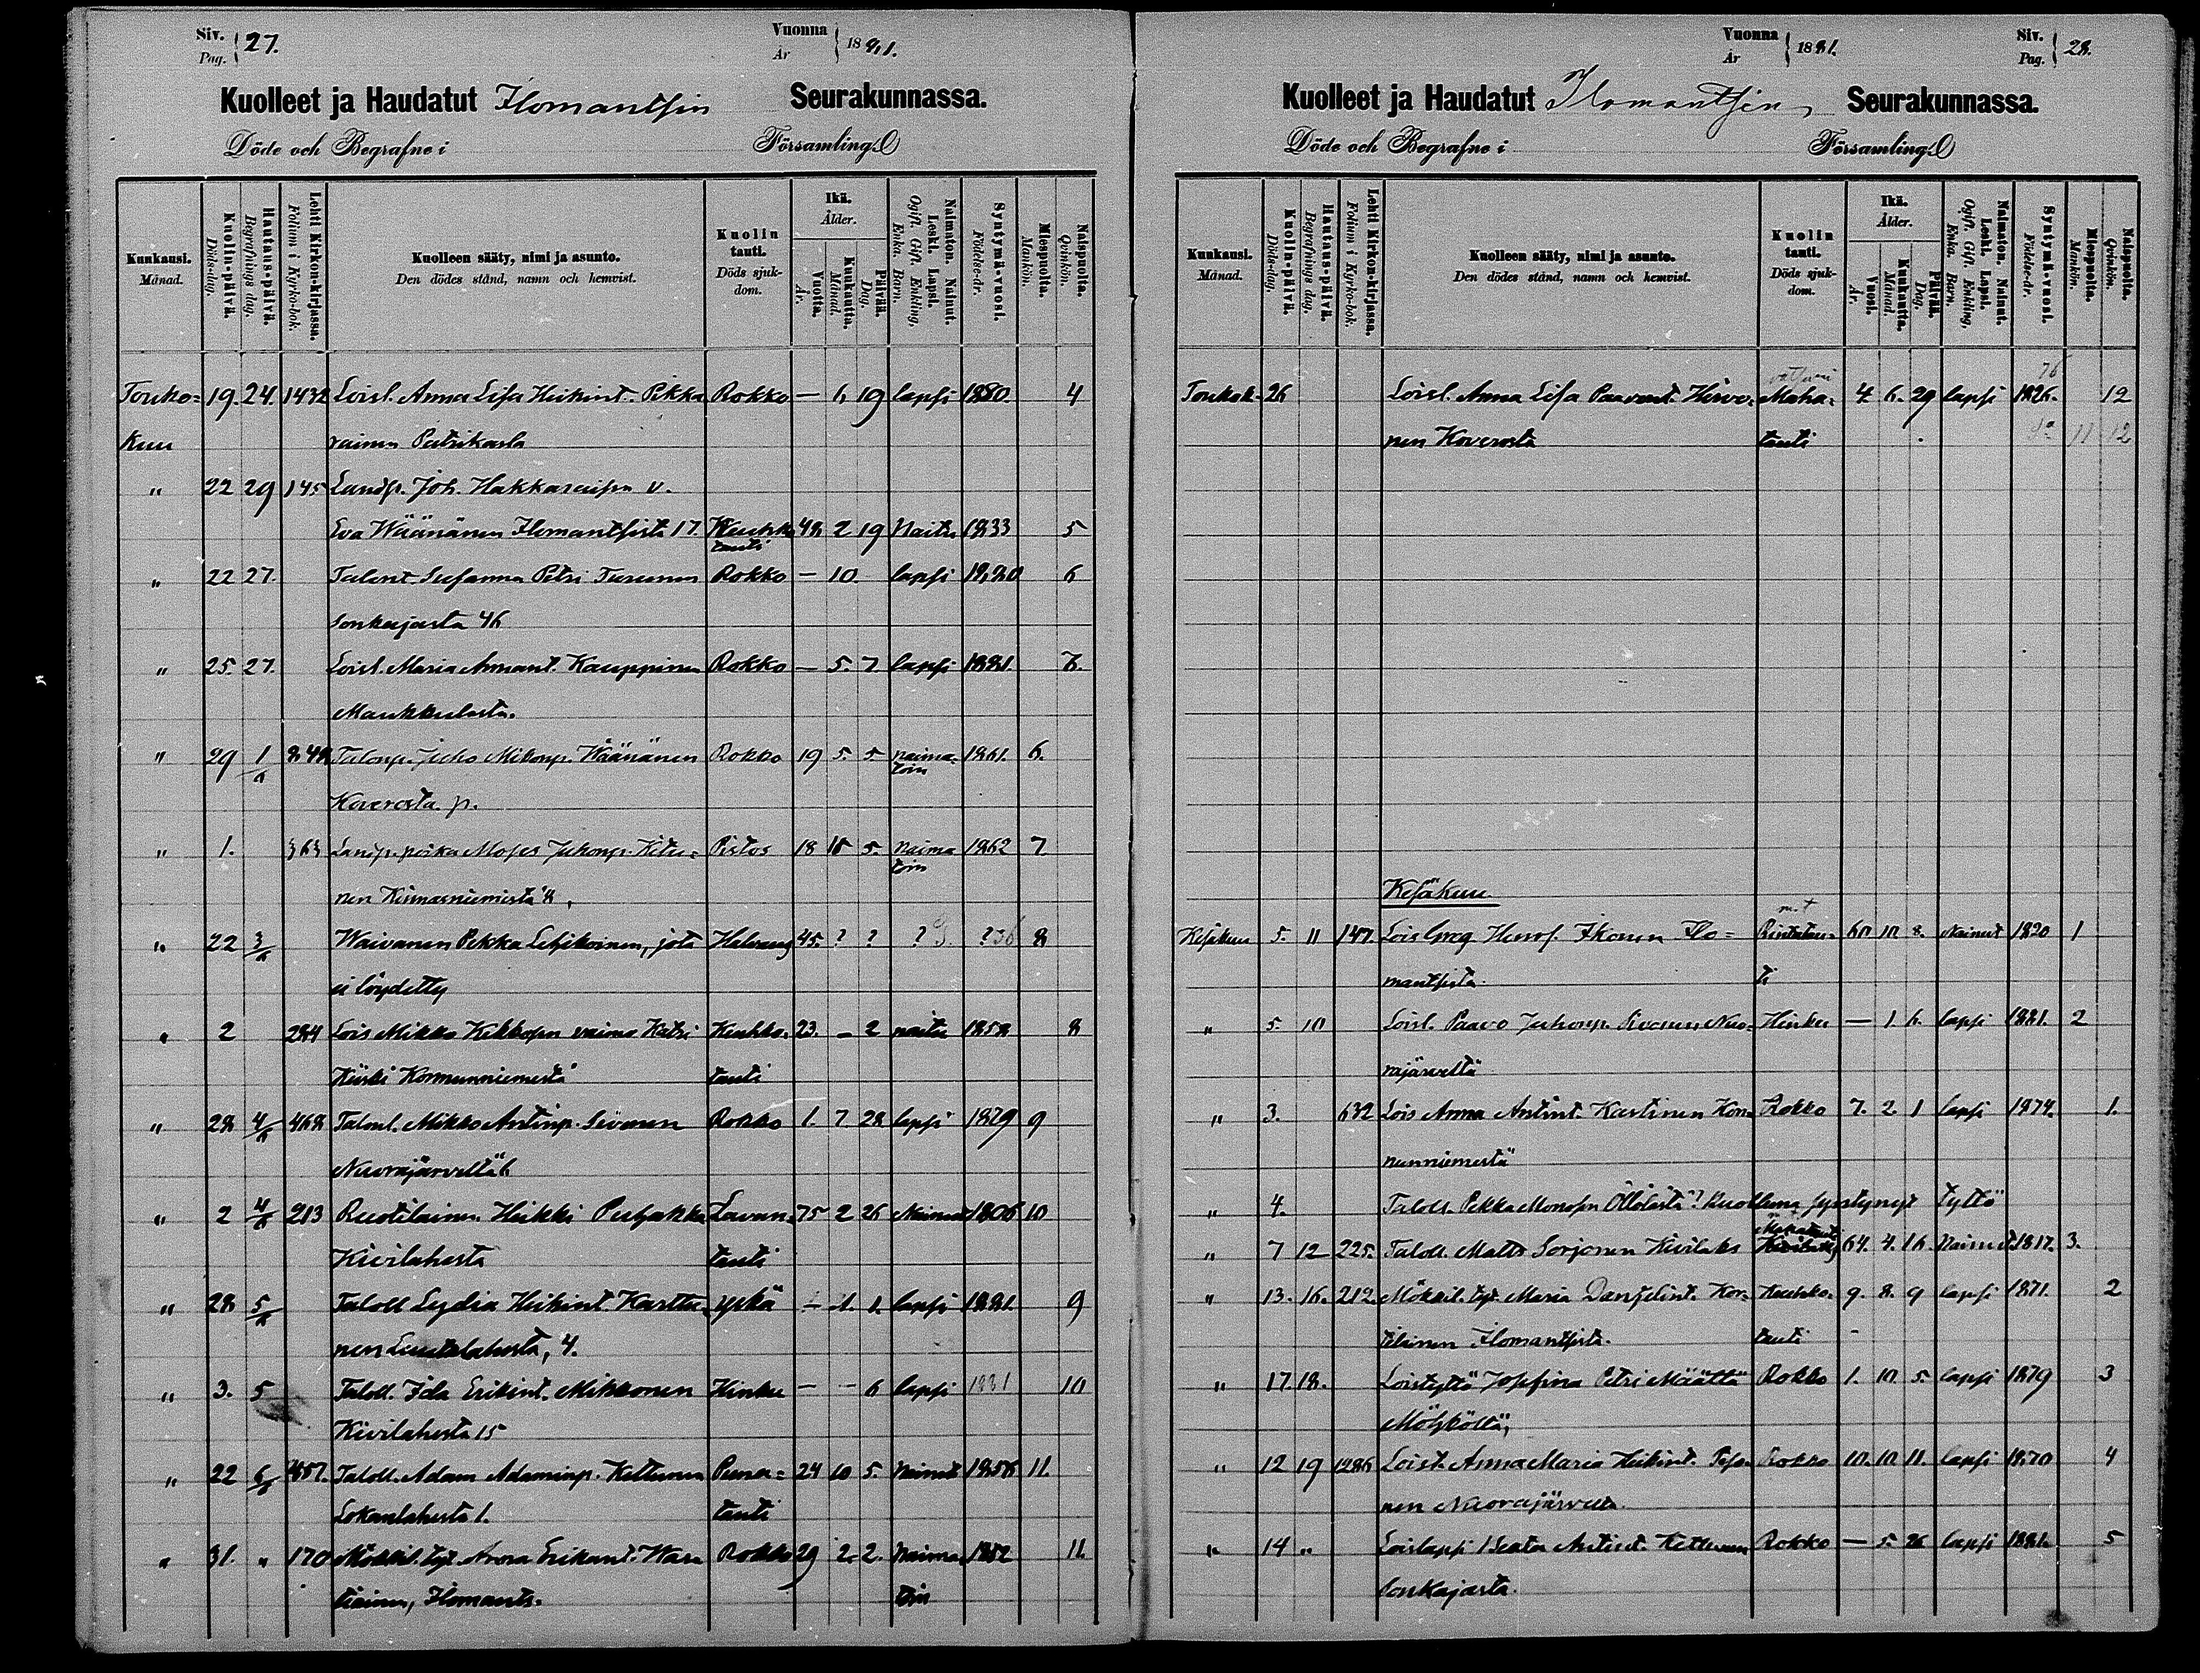 Siv. Pag. 27.
Vuonna År 1881.
Kuolleet ja Haudatut Ilomantsin Seurakunnassa.
Döde och Begrafne i Församling.
Kunkausi. Månad.
Kuolin-päivä. Döds-dag.
Hautaus-päivä. Begrafnings dag.
Lehti Kirkon-kirjassa. Folium i Kyrko-bok.
Kuolleen sääty, nimi ja asunto. Den dödes stånd, namn och hemvist.
Kuolin tauti. Döds sjuk-dom.
Ikä. Ålder.
Vuotta. År.
Kuukautta. Månad.
Päivää. Dag.
Naimaton. Nainut. Leski. Lapsi. Ogift. Gift. Enkling. Enka. Barn.
Syntymä-vuosi. Födelse-år.
Miespuolta. Mankön.
Naispuolta. Qvinkön.
Touko- 19. 24. 1432 Loisl. Anna Lisa Heikint. Pikka Rokko — 6 19 lapsi 1880. 4
kuu rainen
" 22 29 145 Landp. Joh. Hakkaraisen v.
Eva Wäänänen Ilomantsista 17. Keuhko 48 2 19 Naitu 1833 5
tauti
" 22 27. Talont. Susanna Petri Turunen Rokko — 10 lapsi 1880 6
Sonkajasta 46
" 25. 27. Loisl. Maria Amant. Kauppinen Rokko — 5. 7. lapsi 1881. 7.
Maukkulasta.
" 29 1/6 848 Talonp. Juho Mikonp. Wäänänen Rokko 19 5. 5 naima- 1861. 6.
toin
Koverosta p.
" 1. 363 Landp. poika Moses Juhonp. Pistos 18 5. Naima 1862 7
toin
nen 8,
" 22 3/6 Waivanen Pekka jota 45. ? ? ? ? 36 8
ei löydetty
" 2 284 Lois Mikko Kekkosen vaimo Katri Keuhko- 23. — 2 naitu 1858 8
Kiiski Kormunniemestä tauti
" 28 4/6 468 Talonl. Mikko Antinp. Sivonen Rokko 1. 7 28 lapsi 1879 9
Nuorajärveltä 6
" 2 4/6 213 Ruotilainen Heikki Puhakka Lavan- 75 2 26 Nainut 1806 10
Kivilahesta tauti
" 28 5/6 Taloll Lydia Heikint Karttu- yskä — 1. 1. lapsi 1881. 9
nen Luutalahesta, 4.
" 3. 5 Taloll. Ida Erikint. Mikkonen Hinku — — 6 lapsi 1881 10
Kivilahesta 15
" 22 6/6 457. Taloll. Adam Adaminp. Kettunen Puna- 24 10 5. Nainut 1856 11.
Lokanlahesta 1. tauti
" 31. " 170 Mökkil. tyt. Erikint. Wara Rokko 29 2. 2. Naima 1852 11.
tiainen, Ilomants. toin
Siv. Pag. 28.
Vuonna År 1881.
Kuolleet ja Haudatut Ilomantsin Seurakunnassa.
Döde och Begrafne i Församling.
Kunkausi. Månad.
Kuolin-päivä. Döds-dag.
Hautaus-päivä. Begrafnings dag.
Lehti Kirkon-kirjassa. Folium i Kyrko-bok.
Kuolleen sääty, nimi ja asunto. Den dödes stånd, namn och hemvist.
Kuolin tauti. Döds sjuk-dom.
Ikä. Ålder.
Vuosi. År.
Kuukautta. Månad.
Päivää. Dag.
Naimaton. Nainut. Leski. Lapsi. Ogift. Gift. Enkling. Enka. Barn.
Syntymä-vuosi. Födelse-år.
Miespuolta. Mankön.
Naispuolta. Qvinkön.
76
Toukok. 26 Loisl. Anna Lisa Paavont. Hirvo- Maha- 4 6. 29 lapsi 1826. 12
nen Koverosta tauti 11 12
Kesäkuu
Kesäkuu 5. 11 147 Lois Greg Henr. Ikonen Ilo- Rintatau- 60 10 8. Nainut 1820 1
mantsista ti
" 5. 10 Loisl. Paavo Juhonp. Sivonen Nuo- Hinku — 1. 6. lapsi 1881. 2
rajärveltä
" 3. 632 Lois Anna Antint. Karttunen Kor- Rokko 7. 2. 1 lapsi 1874. 1.
nunniemestä
" 4. Taloll. Pekka Monosen Öllölästä ? kuolleena syntynyt tyttö
" 7 12 225. Taloll. Matts Sorjonen Kivilaks 64. 4. 16. Nainut 1817. 3.
" 13. 16. 212. Mökkil. tyt. Maria Danjelint. Kor- Keuhko- 9. 8. 9 lapsi 1871. 2
tilainen Ilomantsista. tauti
" 17. 18. Loistyttö Josefina Petri Määttä Rokko 1. 10. 5. lapsi 1879 3
Möhköstä,
" 12 19 1286 Loist. Anna Maria Heikint. Rokko 10. 10 11. lapsi 1870 4
nen Nuorajärveltä.
" 14 " Loislapsi Beata Antint. Kettunen Rokko — 5. 26 lapsi 1881. 5
Sonkajasta.